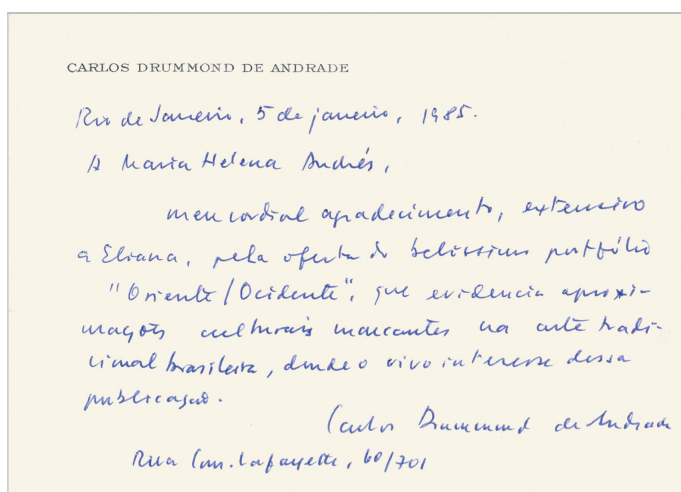 CARLOS DRUMMOND DE ANDRADE
Rio de Janeiro, 5 de janeiro, 1985.
A Maria Helena Andrés,
meu cordial agradecimento, extensivo
a Eliana, pela oferta do belíssimo portfólio
"Oriente/Ocidente", que evidencia aproxi-
mações culturais marcantes na arte tradi-
cional brasileira, donde o vivo interesse dessa
publicação.
Carlos Drummond de Andrade
Rua Cons. Lafayette, 60/701